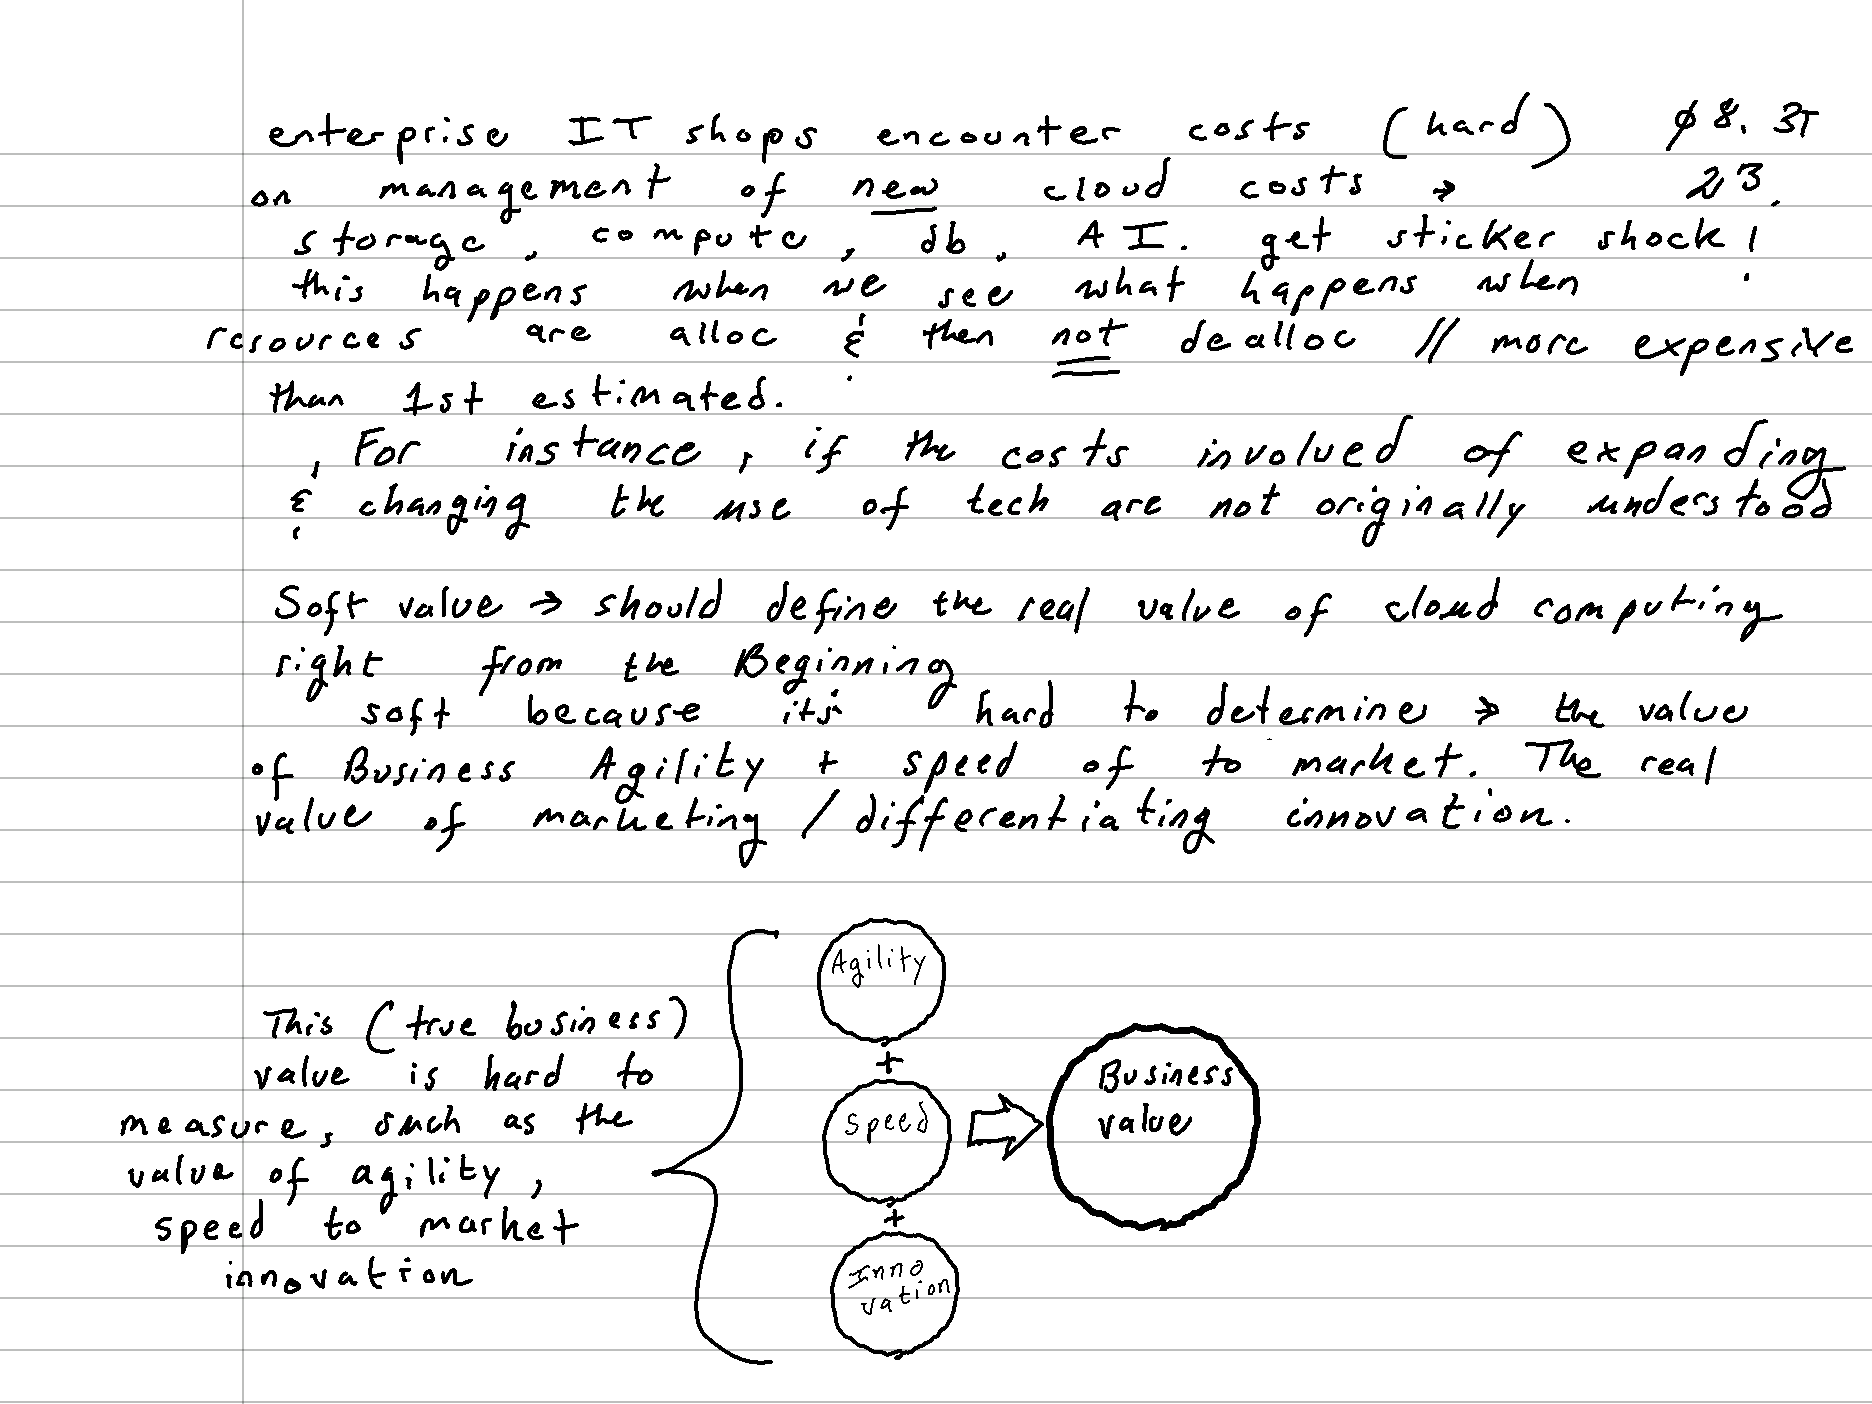 enterprise IT shops encounter costs (hard) $8.3T
on management of new cloud costs → 23.
storage, compute, db, AI. get sticker shock!
this happens when we see what happens when
resources are alloc & then not dealloc // more expensive
than 1st estimated.
For instance, if the costs involved of expanding
& changing the use of tech are not originally understood
Soft value → should define the real value of cloud computing
right from the Beginning
soft because it's hard to determine → the value
of Business Agility + speed of to market. The real
value of marketing / differentiating innovation.
This (true business)
value is hard to
measure, such as the
value of agility,
speed to market
innovation
Agility
+
Speed
+
Inno
vation
Business
value